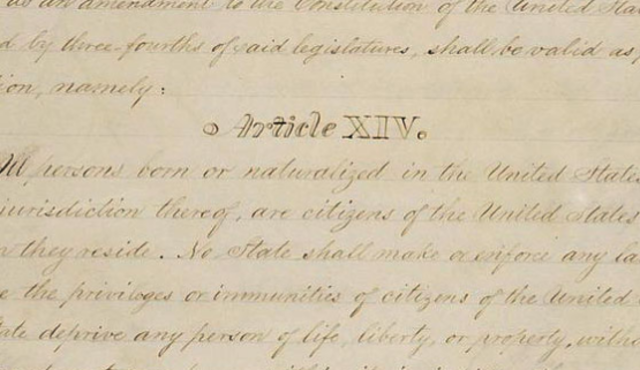 as an amendment to the Constitution of the United Sta
d by three-fourths of said legislatures, shall be valid as p
ion, namely:
Article XIV.
All persons born or naturalized in the United States
jurisdiction thereof, are citizens of the United States
n they reside. No State shall make or enforce any la
e the privileges or immunities of citizens of the United
tate deprive any person of life, liberty, or property, witho